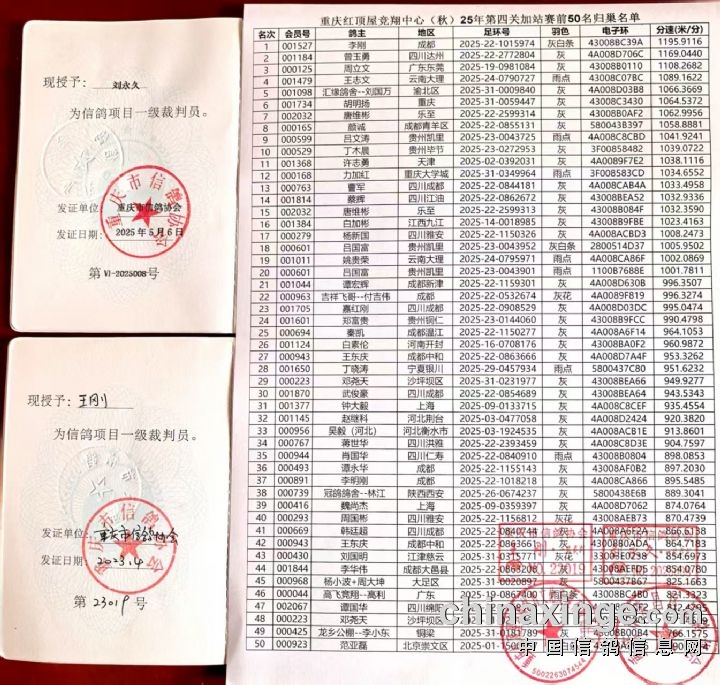 现授予：刘永久
为信鸽项目一级裁判员。
发证单位：重庆市信鸽协会
发证日期：2025年5月6日
第VI-2025008号
重庆市信鸽协会
现授予：王刚
为信鸽项目一级裁判员。
发证单位：重庆市信鸽协会
发证日期：2023.4
第23019号
重庆市信鸽协会
重庆红顶屋竞翔中心（秋）25年第四关加站赛前50名归巢名单
名次 会员号 鸽主 地区 足环号 羽色 电子环 分速(米/分)
1 001527 李刚 成都 2025-22-1015974 灰白条 43008BC39A 1195.9116
2 001184 曾玉勇 四川达州 2025-22-2772804 灰 4A008D706C 1169.0440
3 000125 周立文 广东东莞 2025-19-0981084 灰 43008B0110 1108.2682
4 001479 王志文 云南大理 2025-24-0790727 雨点 43008C07BC 1089.1622
5 001098 汇缘鸽舍--刘国万 渝北区 2025-31-0009840 灰 4A008D03B8 1066.3669
6 001734 胡明扬 重庆 2025-31-0059447 灰 43008C3430 1064.5372
7 002032 唐维彬 乐至 2025-22-2599314 灰 43008B0AF2 1062.9956
8 000165 颜诚 成都青羊区 2025-22-0855131 灰 580043B397 1058.8881
9 000599 吕文涛 贵州凯里 2025-23-0043725 雨点 4A008C8CBD 1041.9241
10 000529 丁木晨 贵州毕节 2025-23-0272953 灰 3F00858482 1039.0722
11 001368 许志勇 天津 2025-02-0392031 灰 4A0089F7E2 1038.1116
12 000168 力加红 重庆大学城 2025-31-0349964 雨点 3F008583CD 1034.6552
13 000763 曹军 四川成都 2025-22-0844181 灰 4A008CAB4A 1033.4958
14 001814 蔡辉 四川江油 2025-22-0862672 灰 43008BEA52 1032.9336
15 002032 唐维彬 乐至 2025-22-2599313 灰 43008B084F 1032.3590
16 001384 白加彬 江西九江 2025-14-0018985 灰 43008B9FBE 1023.4163
17 000279 杨新国 四川雅安 2025-22-1150326 灰 4A008ACBD3 1008.2473
18 000601 吕国富 贵州凯里 2025-23-0043952 灰白条 2800514D37 1005.9502
19 001011 姚贵荣 云南大理 2025-24-0795971 雨点 4A008CA86F 1002.0869
20 000601 吕国富 贵州凯里 2025-23-0043901 雨点 1100B7688E 1001.7811
21 001044 谭宏辉 成都新津 2025-22-1159301 灰 4A008D630B 996.3507
22 000963 吉祥飞哥--付吉伟 成都 2025-22-0532674 灰花 4A0089F819 996.3274
23 001705 嘉红刚 四川成都 2025-22-0908529 灰 4A008D03DC 995.0474
24 001601 郑富贵 贵州铜仁 2025-23-0144060 灰 43008B9FCC 990.4798
25 000694 秦凯 成都温江 2025-22-1150277 灰 4A008A6F14 964.1053
26 001124 白素伦 河南开封 2025-16-0708176 灰 43008BA0F2 960.9872
27 000943 王东庆 成都中和 2025-22-0863666 灰 4A008D7A4F 953.3262
28 001650 丁晓涛 宁夏银川 2025-29-0454936 雨点 5800437C80 951.6232
29 000223 邓尧天 沙坪坝区 2025-31-0231977 灰 43008BEA64 949.9277
30 001870 武俊豪 四川成都 2025-22-0854689 灰 43008BEA66 942.5343
31 001377 钟大毅 上海 2025-09-0133715 灰 4A008C8CEF 935.4554
32 001145 赵继科 河北荆台 2025-03-0477058 灰 4A008D2424 920.3820
33 000956 吴毅（河北） 河北衡水市 2025-03-1942535 灰 4A008ACB1E 913.8601
34 000767 蒋世华 四川洪雅 2025-22-2393459 灰 4A008C8D3E 904.7597
35 000944 肖国华 四川仁寿 2025-22-0840910 雨点 43008B0804 898.0853
36 000493 谭永华 成都 2025-22-1155143 灰 43008AF0B2 897.2030
37 000891 李明刚 成都 2025-22-1021018 灰 4A008CA866 895.5485
38 000739 冠鸽鸽舍--林江 陕西西安 2025-26-0674237 灰 5800438E6B 889.3041
39 000416 魏尚杰 上海 2025-09-0359397 灰 4A008D7062 874.0764
40 000293 周国彬 四川雅安 2025-22-1156812 灰花 43008AEB73 870.4739
41 000669 韩廷超 四川成都 灰
42 000943 王东庆 成都中和 灰 43008B0ADA 864.7183
43 000430 刘国明 江津慈云 灰花 854.6973
44 001844 李华伟 成都大邑县 灰 854.0780
45 000968 杨小波+周大坤 大足区 2025-31-0020897 灰 5800437B67 825.1663
46 000044 高飞竞翔--高利 广东 2025-19-0867400 雨点 43008BC4B0 821.3323
47 002067 谭国华
48 000223 邓尧天
49 000425 龙乡公棚--李小东 铜梁 2025-31-0181789 灰 43008B00B4 766.1575
50 000923 范亚磊 北京崇文区 灰
5002263074544
chinaxinge.com
中国信鸽信息网